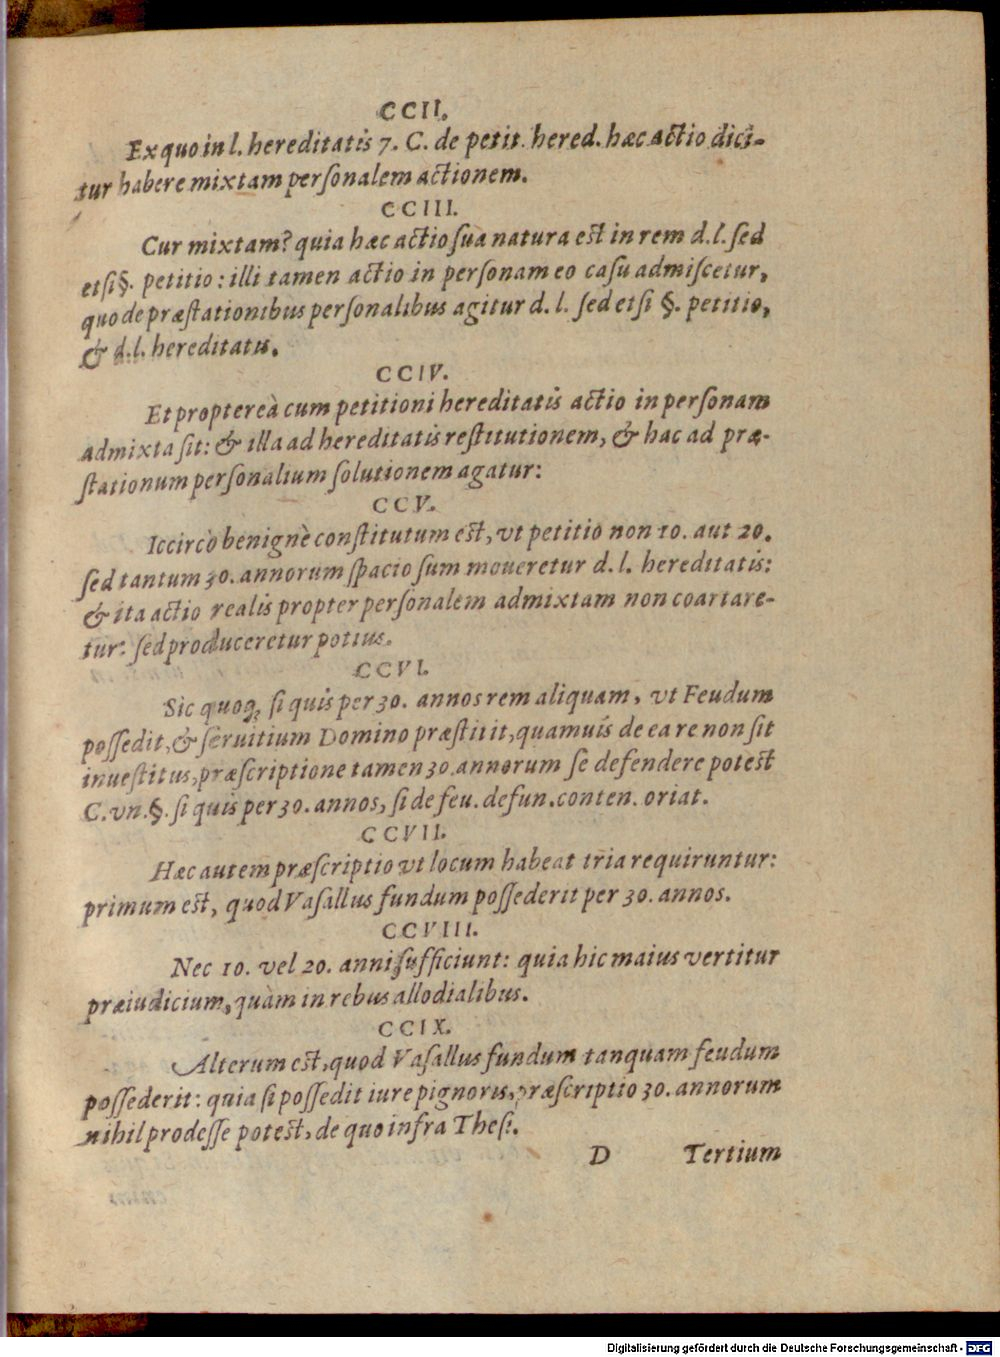 CCII.
Ex quo in l. hereditatis 7. C. de petit. hered. hæc actio dici-
tur habere mixtam personalem actionem.
CCIII.
Cur mixtam? quia hæc actio sua natura est in rem d. l. sed
et si §. petitio: illi tamen actio in personam eo casu admiscetur,
quo de præstationibus personalibus agitur d. l. sed et si §. petitio,
& d. l. hereditatis.
CCIV.
Et propterea cum petitioni hereditatis actio in personam
admixta sit: & illa ad hereditatis restitutionem, & hac ad præ-
stationum personalium solutionem agatur:
CCV.
Iccircò benignè constitutum est, vt petitio non 10. aut 20.
sed tantum 30. annorum spacio summoueretur d. l. hereditatis:
& ita actio realis propter personalem admixtam non coartare-
tur: sed produceretur potius.
CCVI.
Sic quoq; si quis per 30. annos rem aliquam, vt Feudum
possedit, & seruitium Domino præstitit, quamuis de ea re non sit
inuestitus, præscriptione tamen 30. annorum se defendere potest
C. vn. §. si quis per 30. annos, si de feu. defun. conten. oriat.
CCVII.
Hæc autem præscriptio vt locum habeat tria requiruntur:
primum est, quod Vasallus fundum possederit per 30. annos.
CCVIII.
Nec 10. vel 20. anni sufficiunt: quia hic maius vertitur
præiudicium, quàm in rebus allodialibus.
CCIX.
Alterum est, quod Vasallus fundum tanquam feudum
possederit: quia si possedit iure pignoris, præscriptio 30. annorum
nihil prodesse potest, de quo infra Thesi.
D Tertium
Digitalisierung gefördert durch die Deutsche Forschungsgemeinschaft - DFG